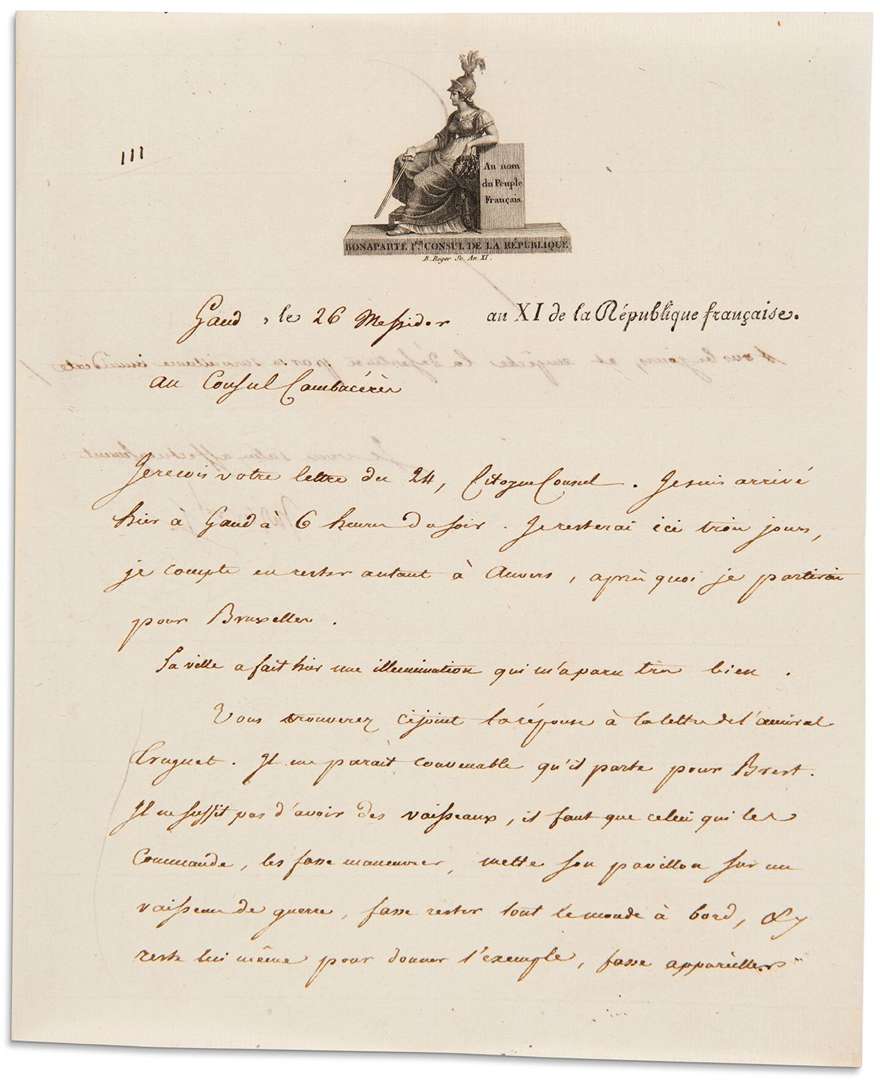 111
Au nom
du Peuple
Français.
BONAPARTE 1er. CONSUL DE LA RÉPUBLIQUE
B. Roger Sc. An XI.
Gand, le 26 Messidor an XI de la République française.
au Consul Cambacérès
Je recois votre lettre du 24, Citoyen Consul. Je suis arrivé
hier à Gand à 6 heures du soir. Je resterai ici trois jours,
je compte en rester autant à Anvers, après quoi je partirai
pour Bruxelles.
La ville a fait hier une illumination qui m'a paru très bien.
Vous trouverez ci joint la réponse à la lettre de l'amiral
Truguet. Il me parait convenable qu'il parte pour Brest.
Il ne suffit pas d'avoir des vaisseaux, il faut que celui qui les
Commande, les fasse manœuvrer, mette son pavillon sur un
vaisseau de guerre, fasse rester tout le monde à bord, & y
reste lui même pour donner l'exemple, fasse appareiller